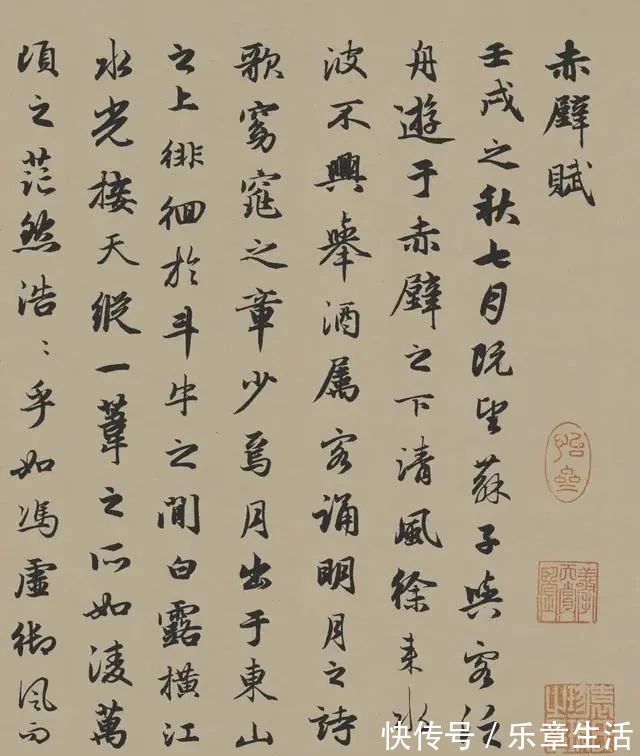 赤壁賦
壬戌之秋七月既望蘇子與客泛
舟遊于赤壁之下清風徐来水
波不興舉酒属客誦明月之詩
歌窈窕之章少焉月出于東山
之上徘徊於斗牛之間白露橫江
水光接天縱一葦之所如凌萬
頃之茫然浩〻乎如馮虛御風而
快传号/乐章生活